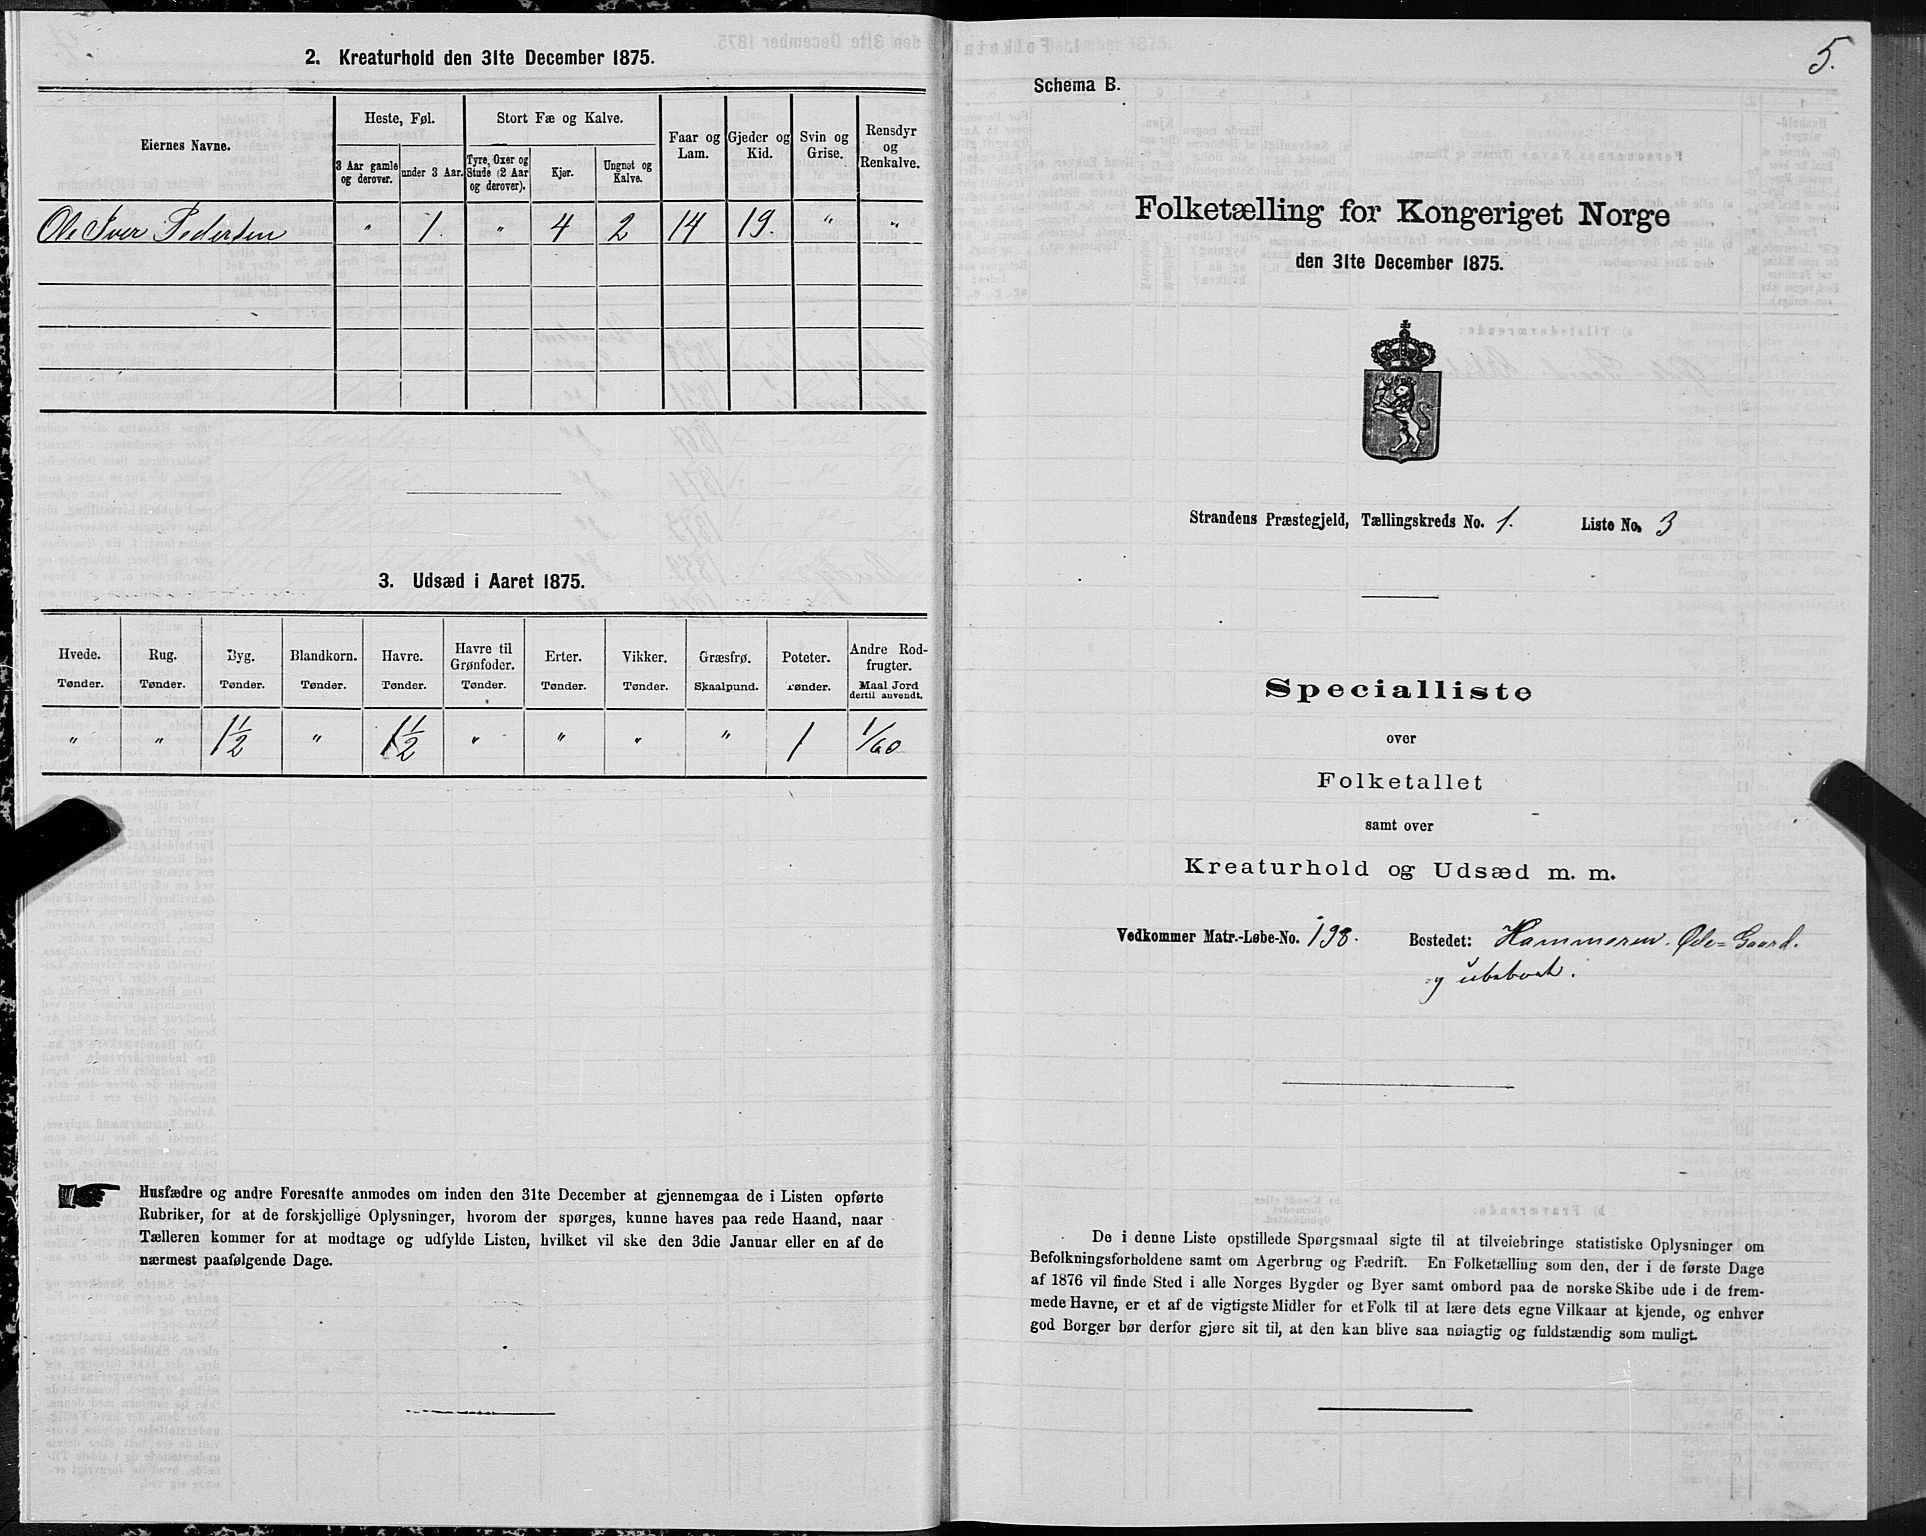 2. Kreaturhold den 31te December 1875.
Eiernes Navne.
Heste, Føl.
Stort Fæ og Kalve.
Faar og Lam.
Gjeder og Kid.
Svin og Grise.
Rensdyr og Renkalve.
3 Aar gamle og derover.
under 3 Aar.
Tyre, Oxer og Stude (2 Aar og derover).
Kjør.
Ungnøt og Kalve.
Ole Iver Pedersen " 1. " 4 2 14 19. " "
3. Udsæd i Aaret 1875.
Hvede. Rug. Byg. Blandkorn. Havre. Havre til Grønfoder. Erter. Vikker. Græsfrø. Poteter. Andre Rodfrugter.
Tønder. Tønder. Tønder. Tønder. Tønder. Tønder. Tønder. Tønder. Skaalpund. Tønder. Maal Jord dertil anvendt.
" " 1½ " 1½ " " " " 1 1/60
Husfædre og andre Foresatte anmodes om inden den 31te December at gjennemgaa de i Listen opførte
Rubriker, for at de forskjellige Oplysninger, hvorom der spørges, kunne haves paa rede Haand, naar
Tælleren kommer for at modtage og udfylde Listen, hvilket vil ske den 3die Januar eller en af de
nærmest paafølgende Dage.
5.
Schema B.
Folketælling for Kongeriget Norge
den 31te December 1875.
Strandens Præstegjeld, Tællingskreds No. 1. Liste No. 3
Specialliste
over
Folketallet
samt over
Kreaturhold og Udsæd m. m.
Vedkommer Matr.-Løbe-No. 198. Bostedet: Hammeren. Øde=Gaard.
og ubeboet.
De i denne Liste opstillede Spørgsmaal sigte til at tilveiebringe statistiske Oplysninger om
Befolkningsforholdene samt om Agerbrug og Fædrift. En Folketælling som den, der i de første Dage
af 1876 vil finde Sted i alle Norges Bygder og Byer samt ombord paa de norske Skibe ude i de frem-
mede Havne, er et af de vigtigste Midler for et Folk til at lære dets egne Vilkaar at kjende, og enhver
god Borger bør derfor gjøre sit til, at den kan blive saa nøiagtig og fuldstændig som muligt.